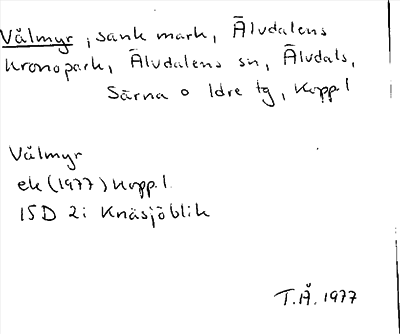 Vålmyr, sank mark, Älvdalens
kronopark, Älvdalens sn, Älvdals,
Särna o Idre tg, Kopp.l
Vålmyr
ek (1977) Kopp.l.
15D 2i Knäsjöblik
T.Å. 1977